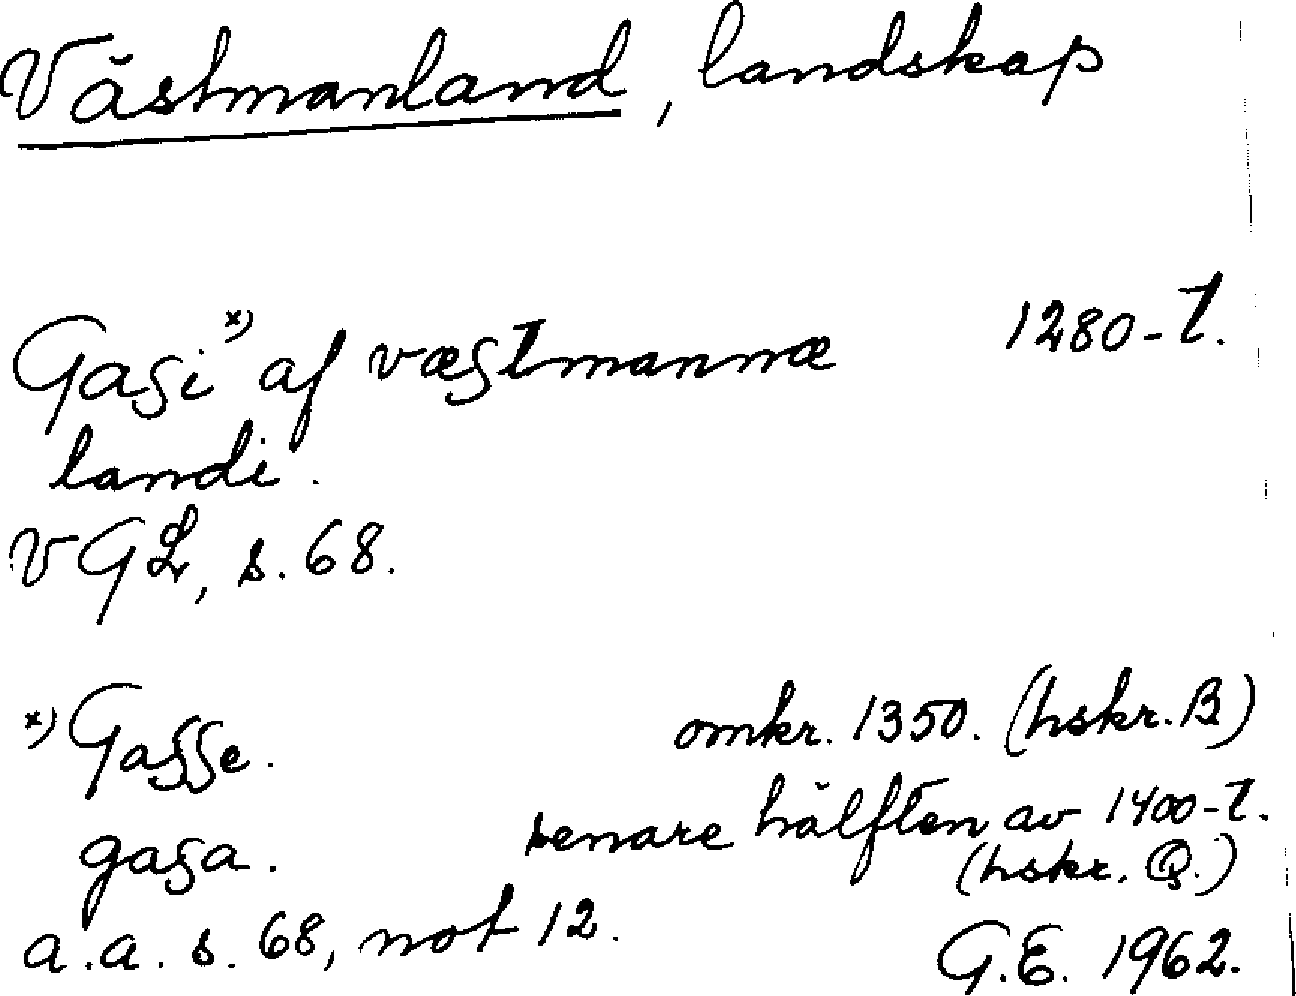 Västmanland, landskap
Gasi x) af væstmannæ 1280-t.
landi.
VGL, s. 68.
x) Gasse. omkr. 1350. (hskr. B)
gasa. senare hälften av 1400-t.
(hskr. Q.)
a.a. s. 68, not 12.
G.E. 1962.